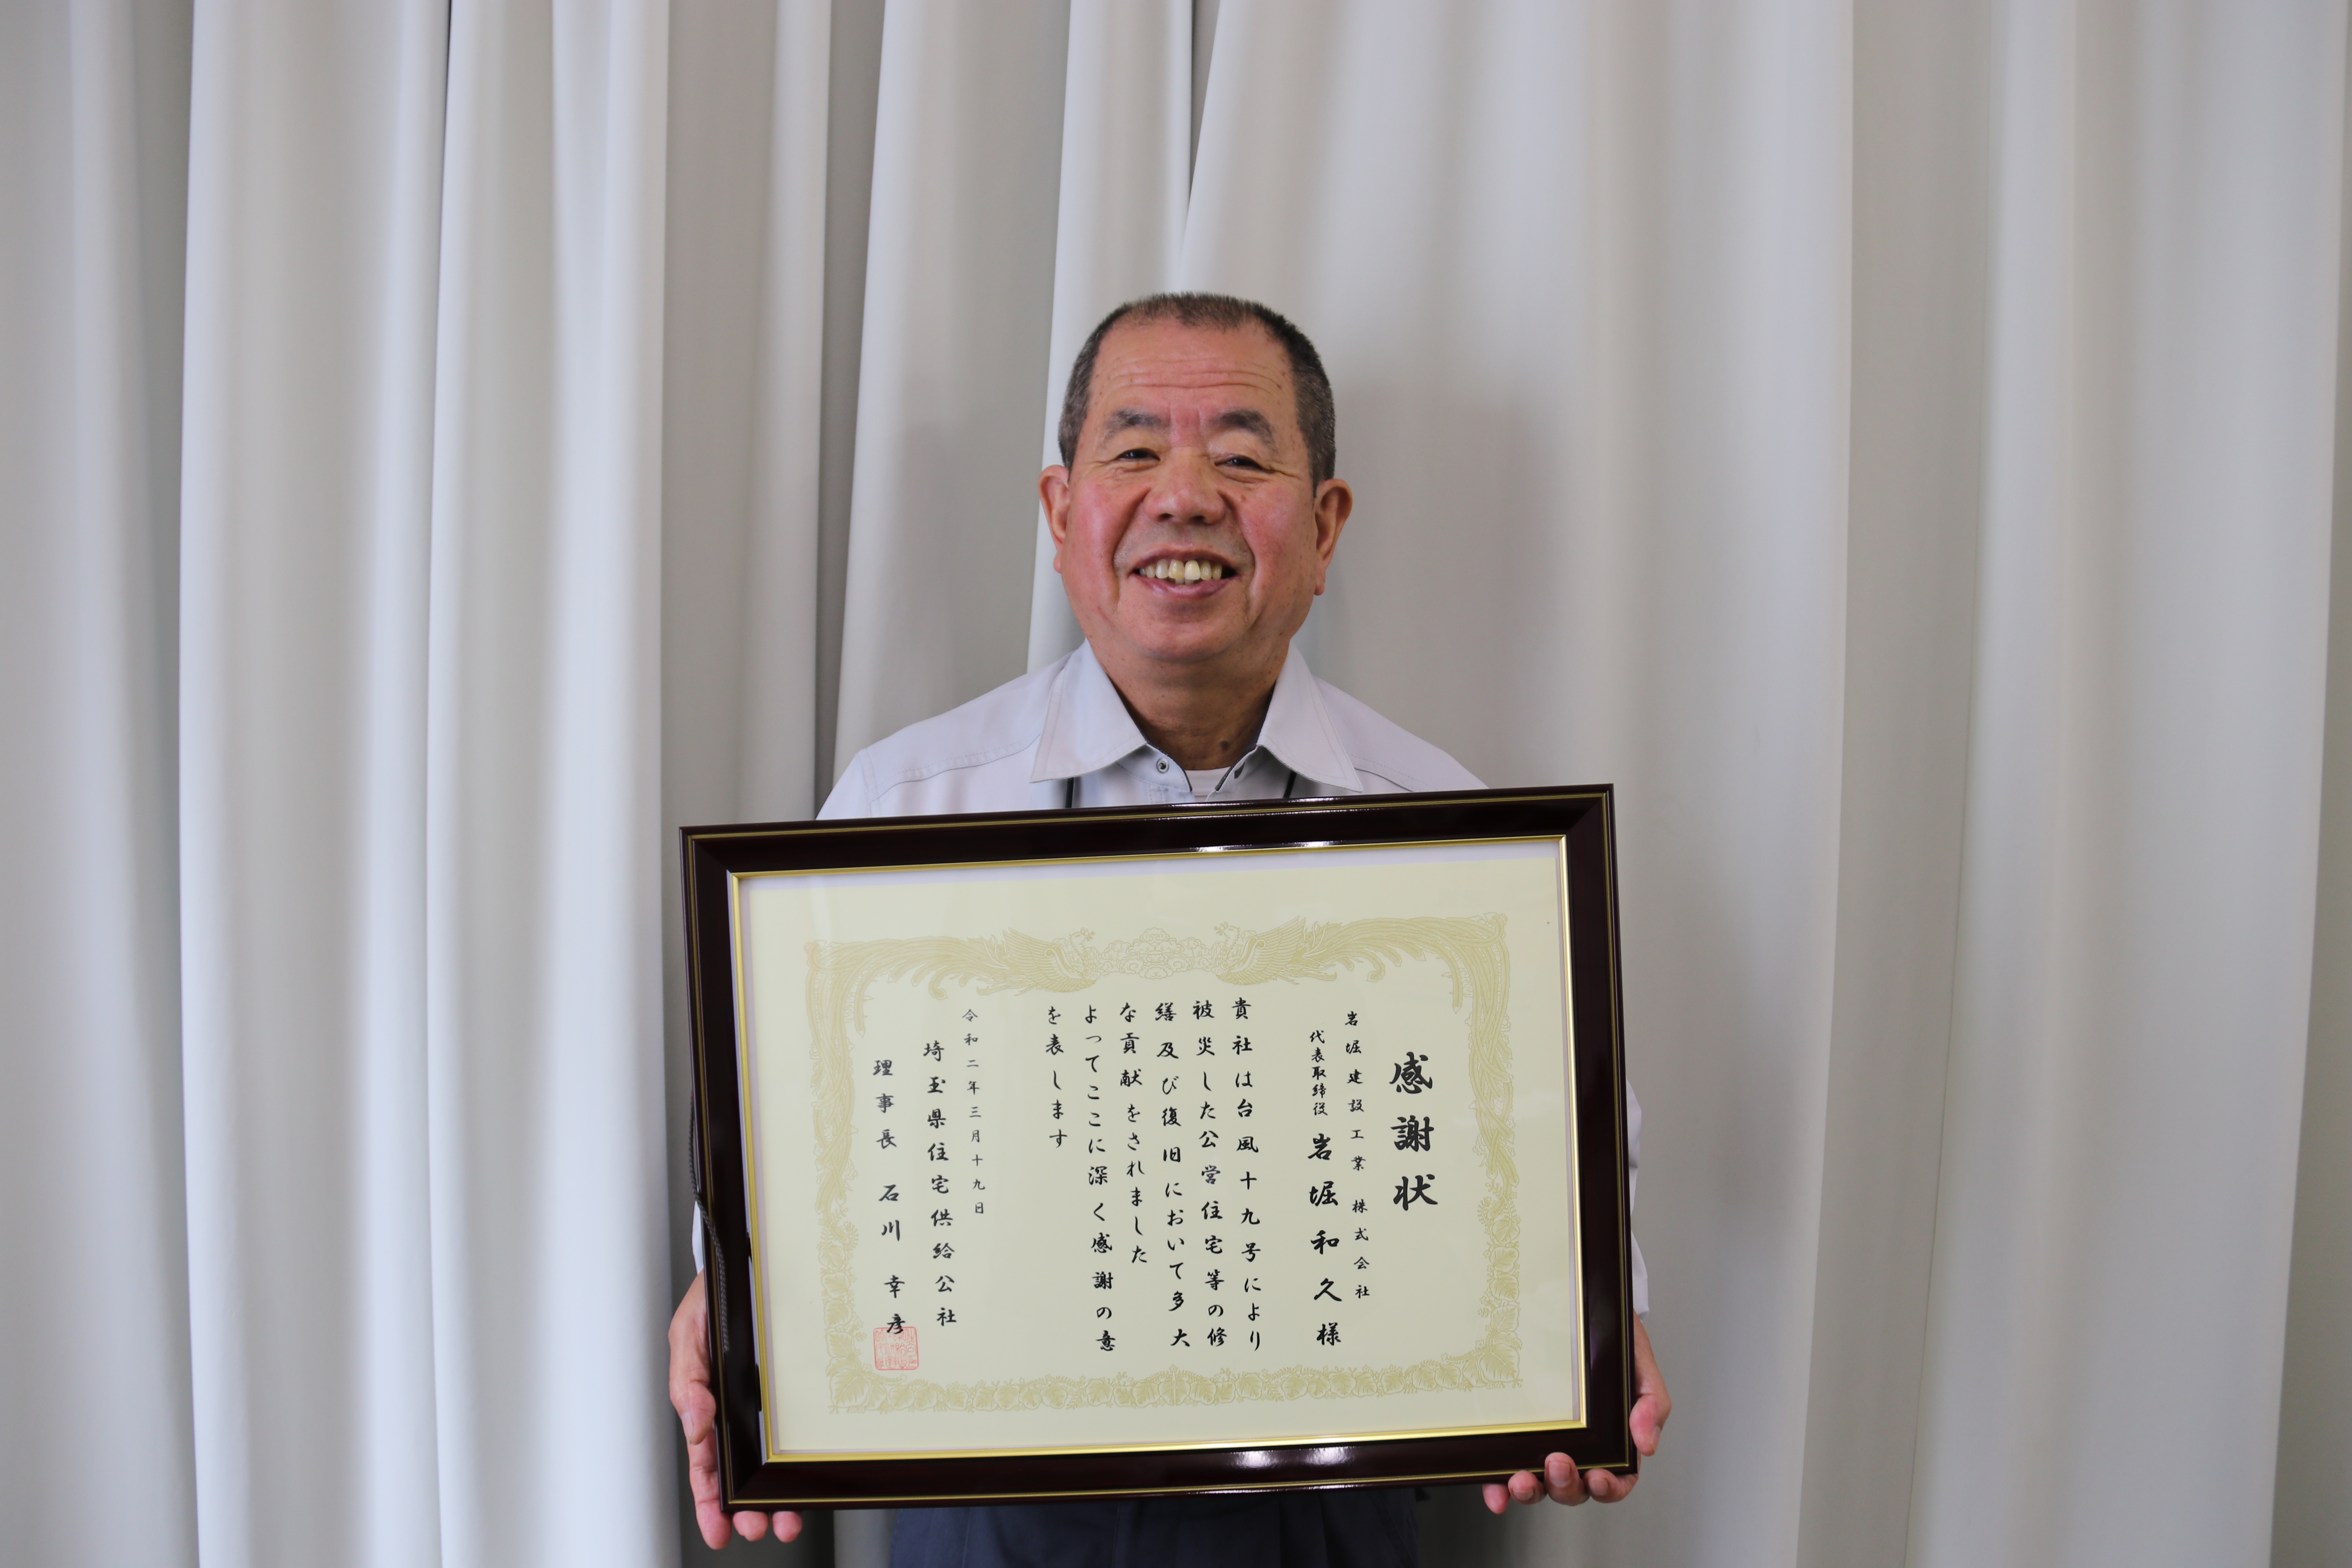 感謝状
岩堀建設工業 株式会社
代表取締役 岩堀和久様
貴社は台風十九号により
被災した公営住宅等の修
繕及び復旧において多大
な貢献をされました
よってここに深く感謝の意
を表します
令和二年三月十九日
埼玉県住宅供給公社
理事長 石川 幸彦